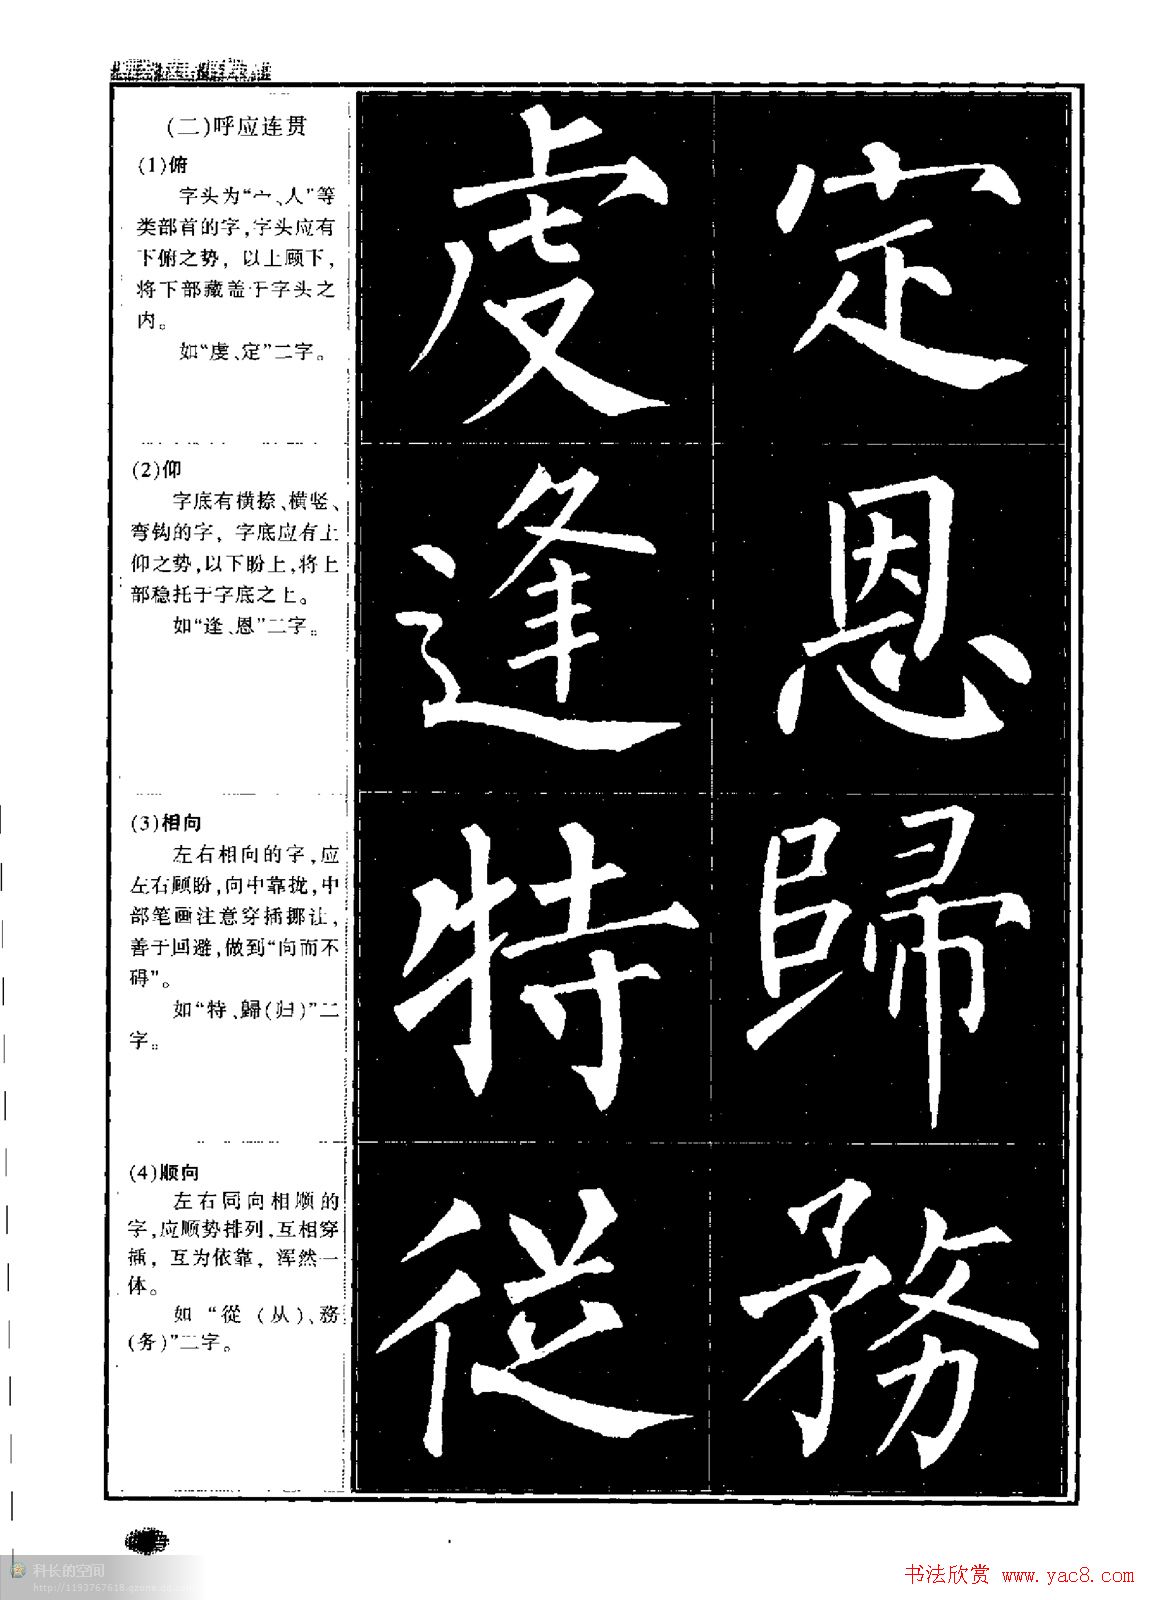 (二)呼应连贯
(1)俯
字头为“宀、人”等
类部首的字,字头应有
下俯之势，以上顾下，
将下部藏盖于字头之
内。
如“虔、定”二字。
虔 定
(2)仰
字底有横捺、横竖、
弯钩的字，字底应有上
仰之势,以下盼上,将上
部稳托于字底之上。
如“逢、恩”二字。
逢 恩
(3)相向
左右相向的字,应
左右顾盼,向中靠拢,中
部笔画注意穿插挪让,
善于回避,做到“向而不
碍”。
如“特、歸(归)”二
字。
特 歸
(4)顺向
左右同向相顺的
字,应顺势排列,互相穿
插，互为依靠，浑然一
体。
如“從(从)、務
(务)”二字。
從 務
科长的空间
http://1193767618.qzone.qq.com
书法欣赏 www.yac8.com